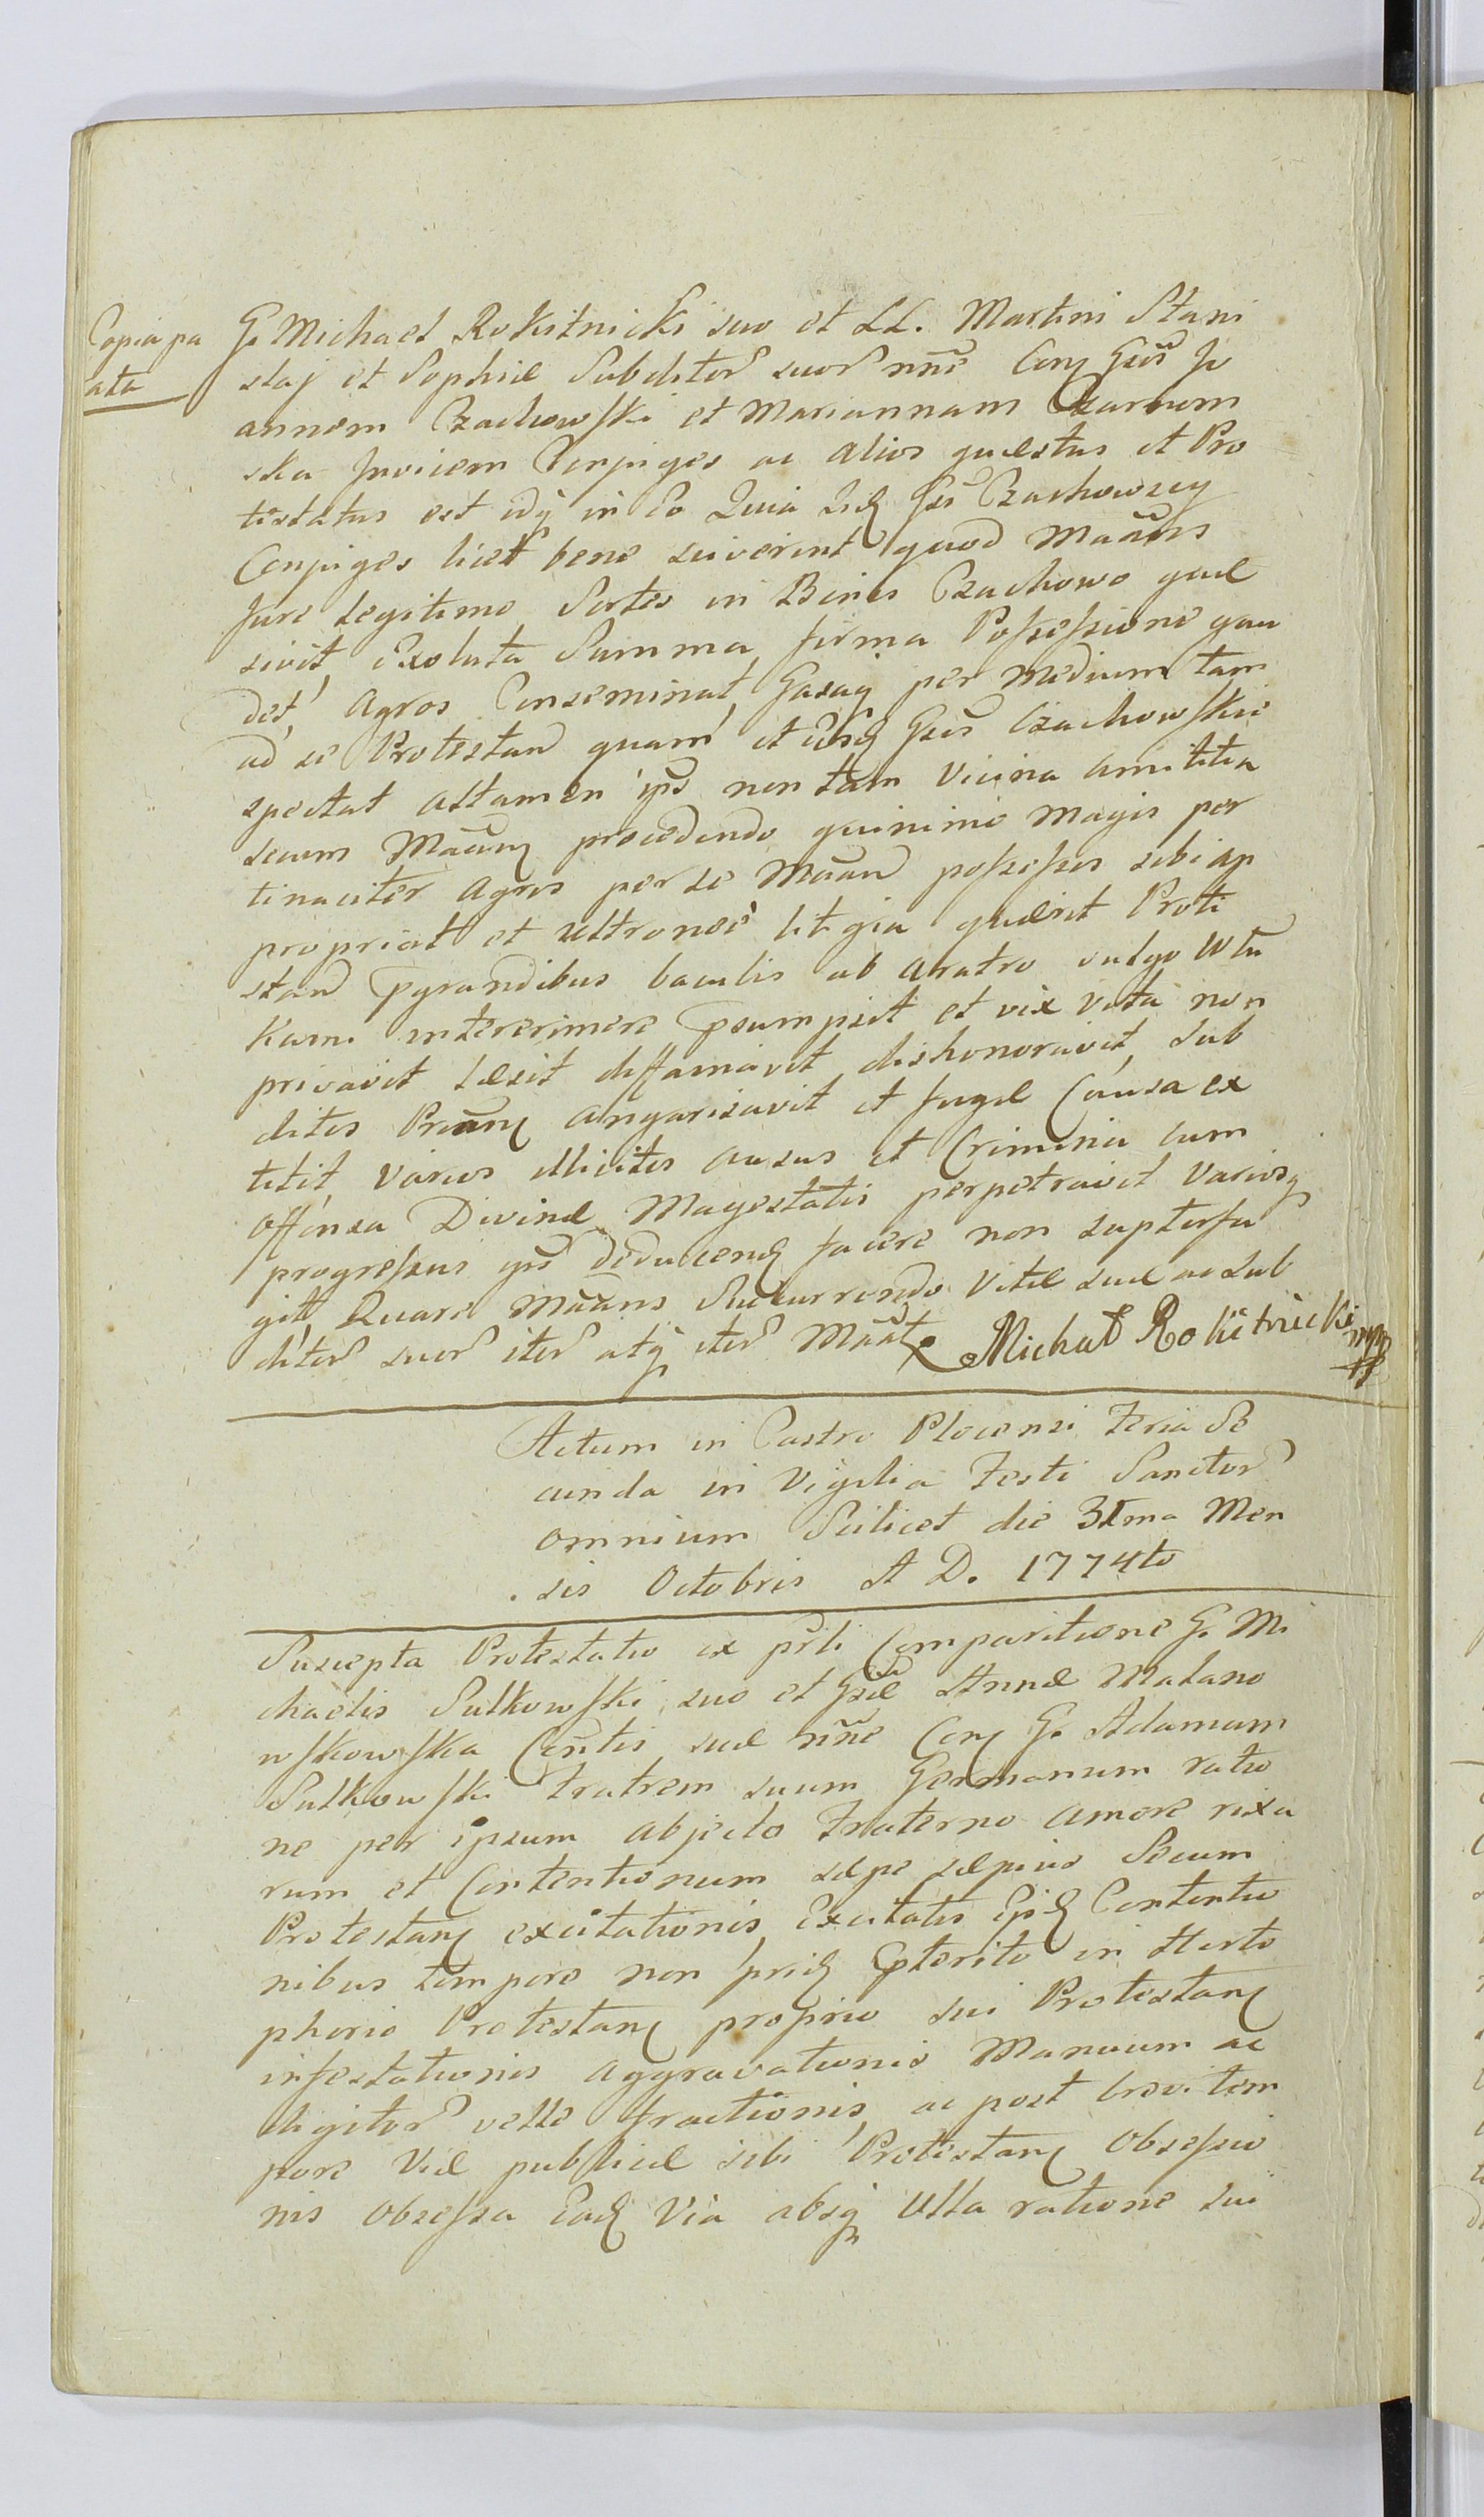 Copia pa
rata
G. Michael Rokitnicki suo et LL. Martini Stani
slaj et Sophiæ Subditor suor nne Con Gsos Jo
annem Czachowski et Mariannam Czarnom
ska Invicem Conjuges ac alios quæstus et Pro
testatus est idq in eo Quia Iid Gsi Czachowscy
Conjuges licet bene sciverint quod Maans
Jure legitimo Sortes in Bonis Czachowo quæ
sivit, exoluta Summa, firma Possessione gau
det, Agros Conseminat, Gajaq per medium tam
ad se Protestan quam et eosd Gsos Czachowskie
spectat attamen ips non tam vicina amicitia
secum Maan procedendo quinimo magis per
tinaciter agros per se Maan possessos sibi ap
propriat et ultroneè litigia quærit Prote
stan pgrandibus baculis ab aratro vulgo
kami intererimere psumpsit et vix vita non
privavit læsit diffamavit dishonoravit, sub
ditos Praan angarisavit et fugæ Causa ex
titit, varios illicitos ausus et Criminia cum
offensa Divinæ Magestatis perpetravit variosq
progressus ips deducend facere non supterfu
git, Quare Maans Succurrendo Vitæ suæ ac sub
ditor suor iter atq iter Maat Michał Rokitnicki mpp
Actum in Castro Plocensi Feria Se
cunda in Vigilia Festi Sanctor
omnium Scilicet die 31ma Men
sis Octobris A D. 1774to
Suscepta Protestatio ex psli Comparitione G. Mi
chaelis Sutkowski suo et Gsæ Annæ
Contis suæ nne Con G. Adamum
Sutkowski Fratrem suum Germanum ratio
ne per ipsum abjecto Fraterno amore rixa
rum et Contentionum sæpe sæpius Secum
Protestan excitationis, Excitatis Ipsd Contentio
nibus tempore non prid pterito in
phorio Protestan proprio sui Protestan
infestationis aggravationis Manuum ac
digitor velle fractionis, ac post brevi tem
pore Viæ publicæ sibi Protestan Obsessio
nis Obsessa Ead Via absq Ulla ratione sui